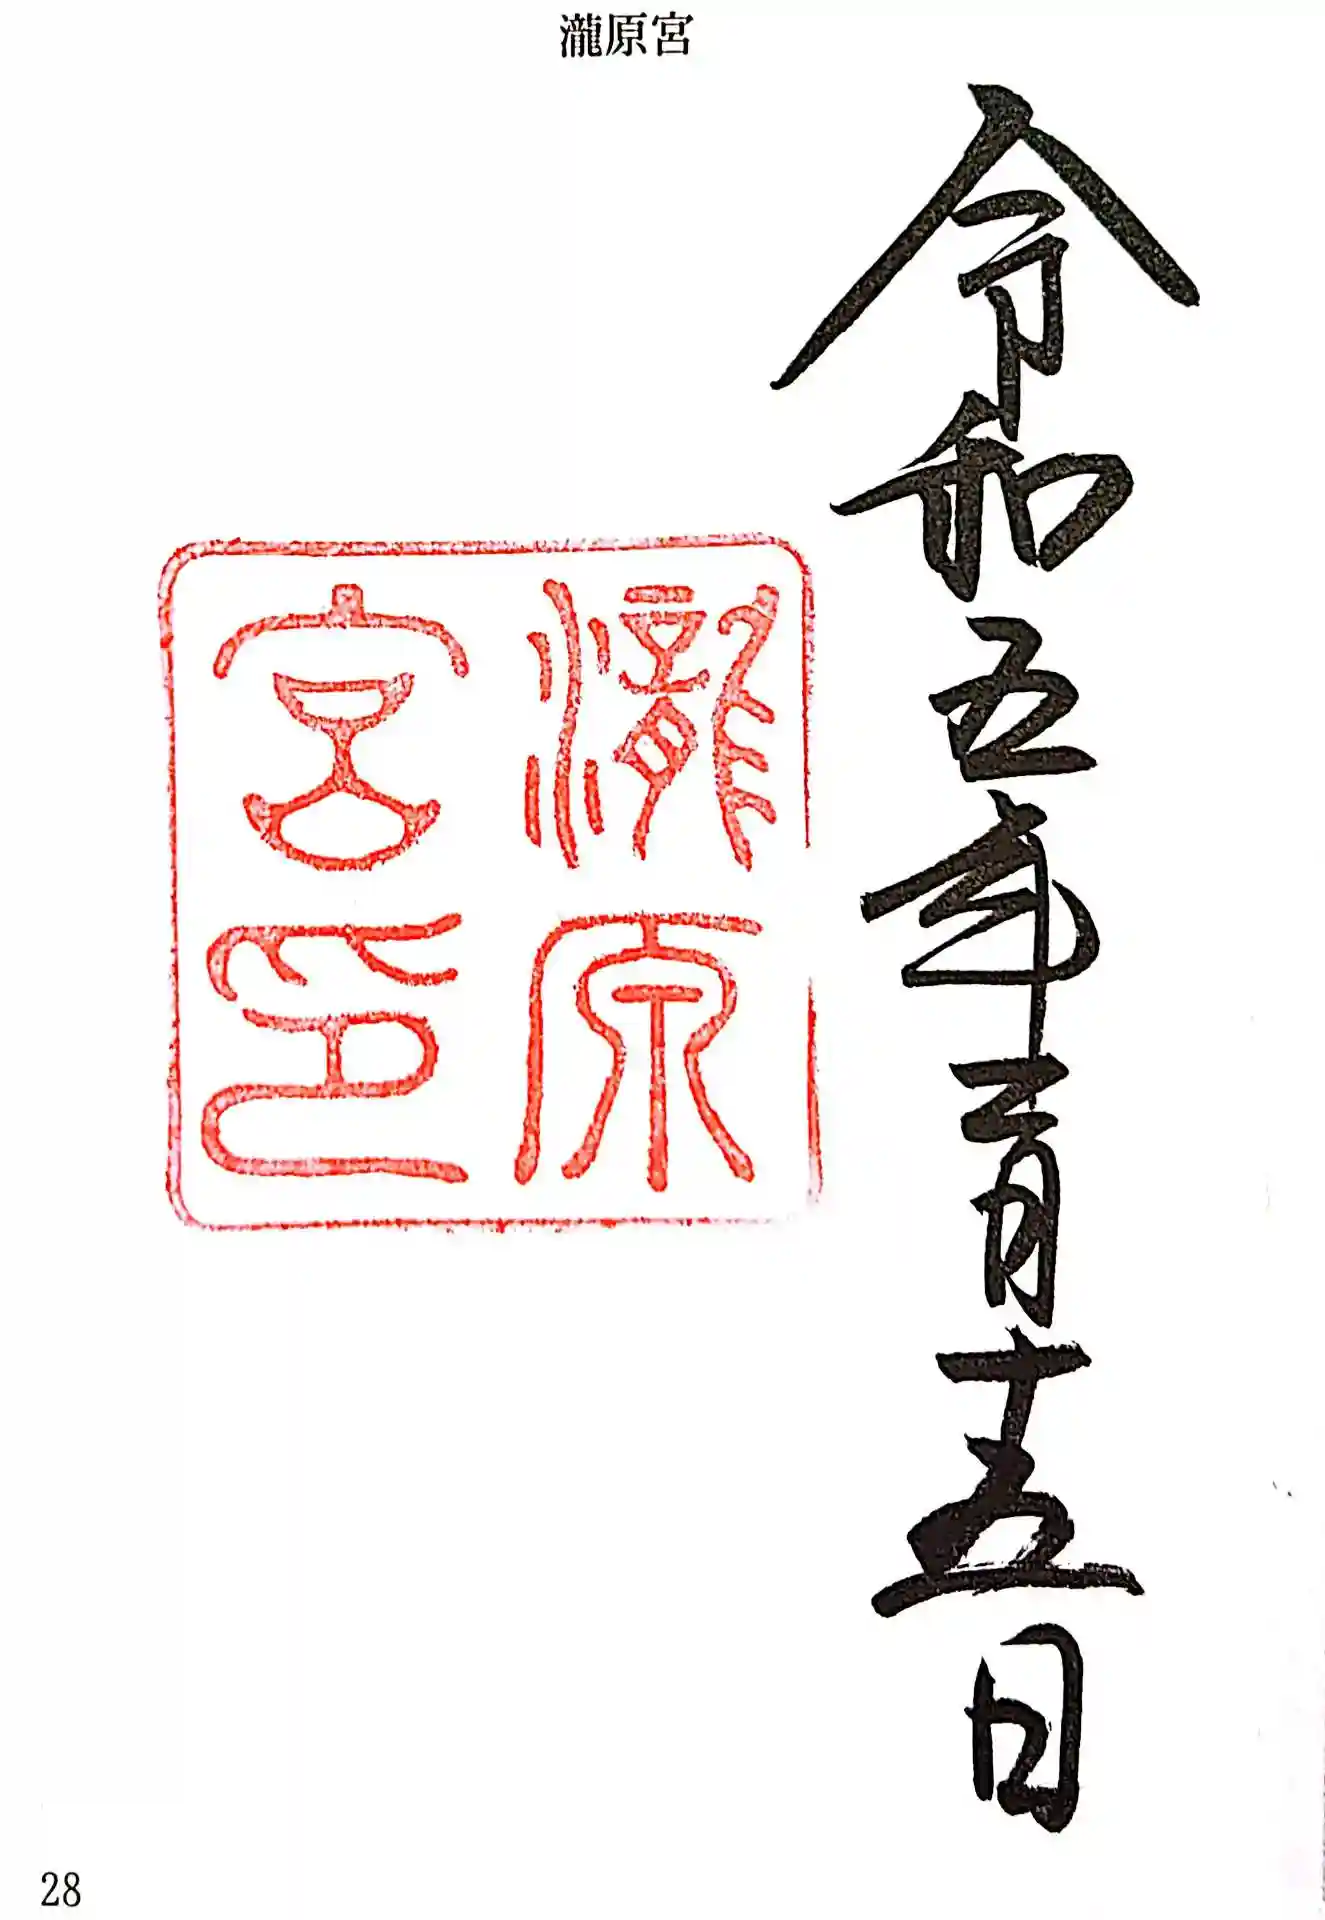 瀧原宮
令和五年三月十五日
瀧原
宮印
28